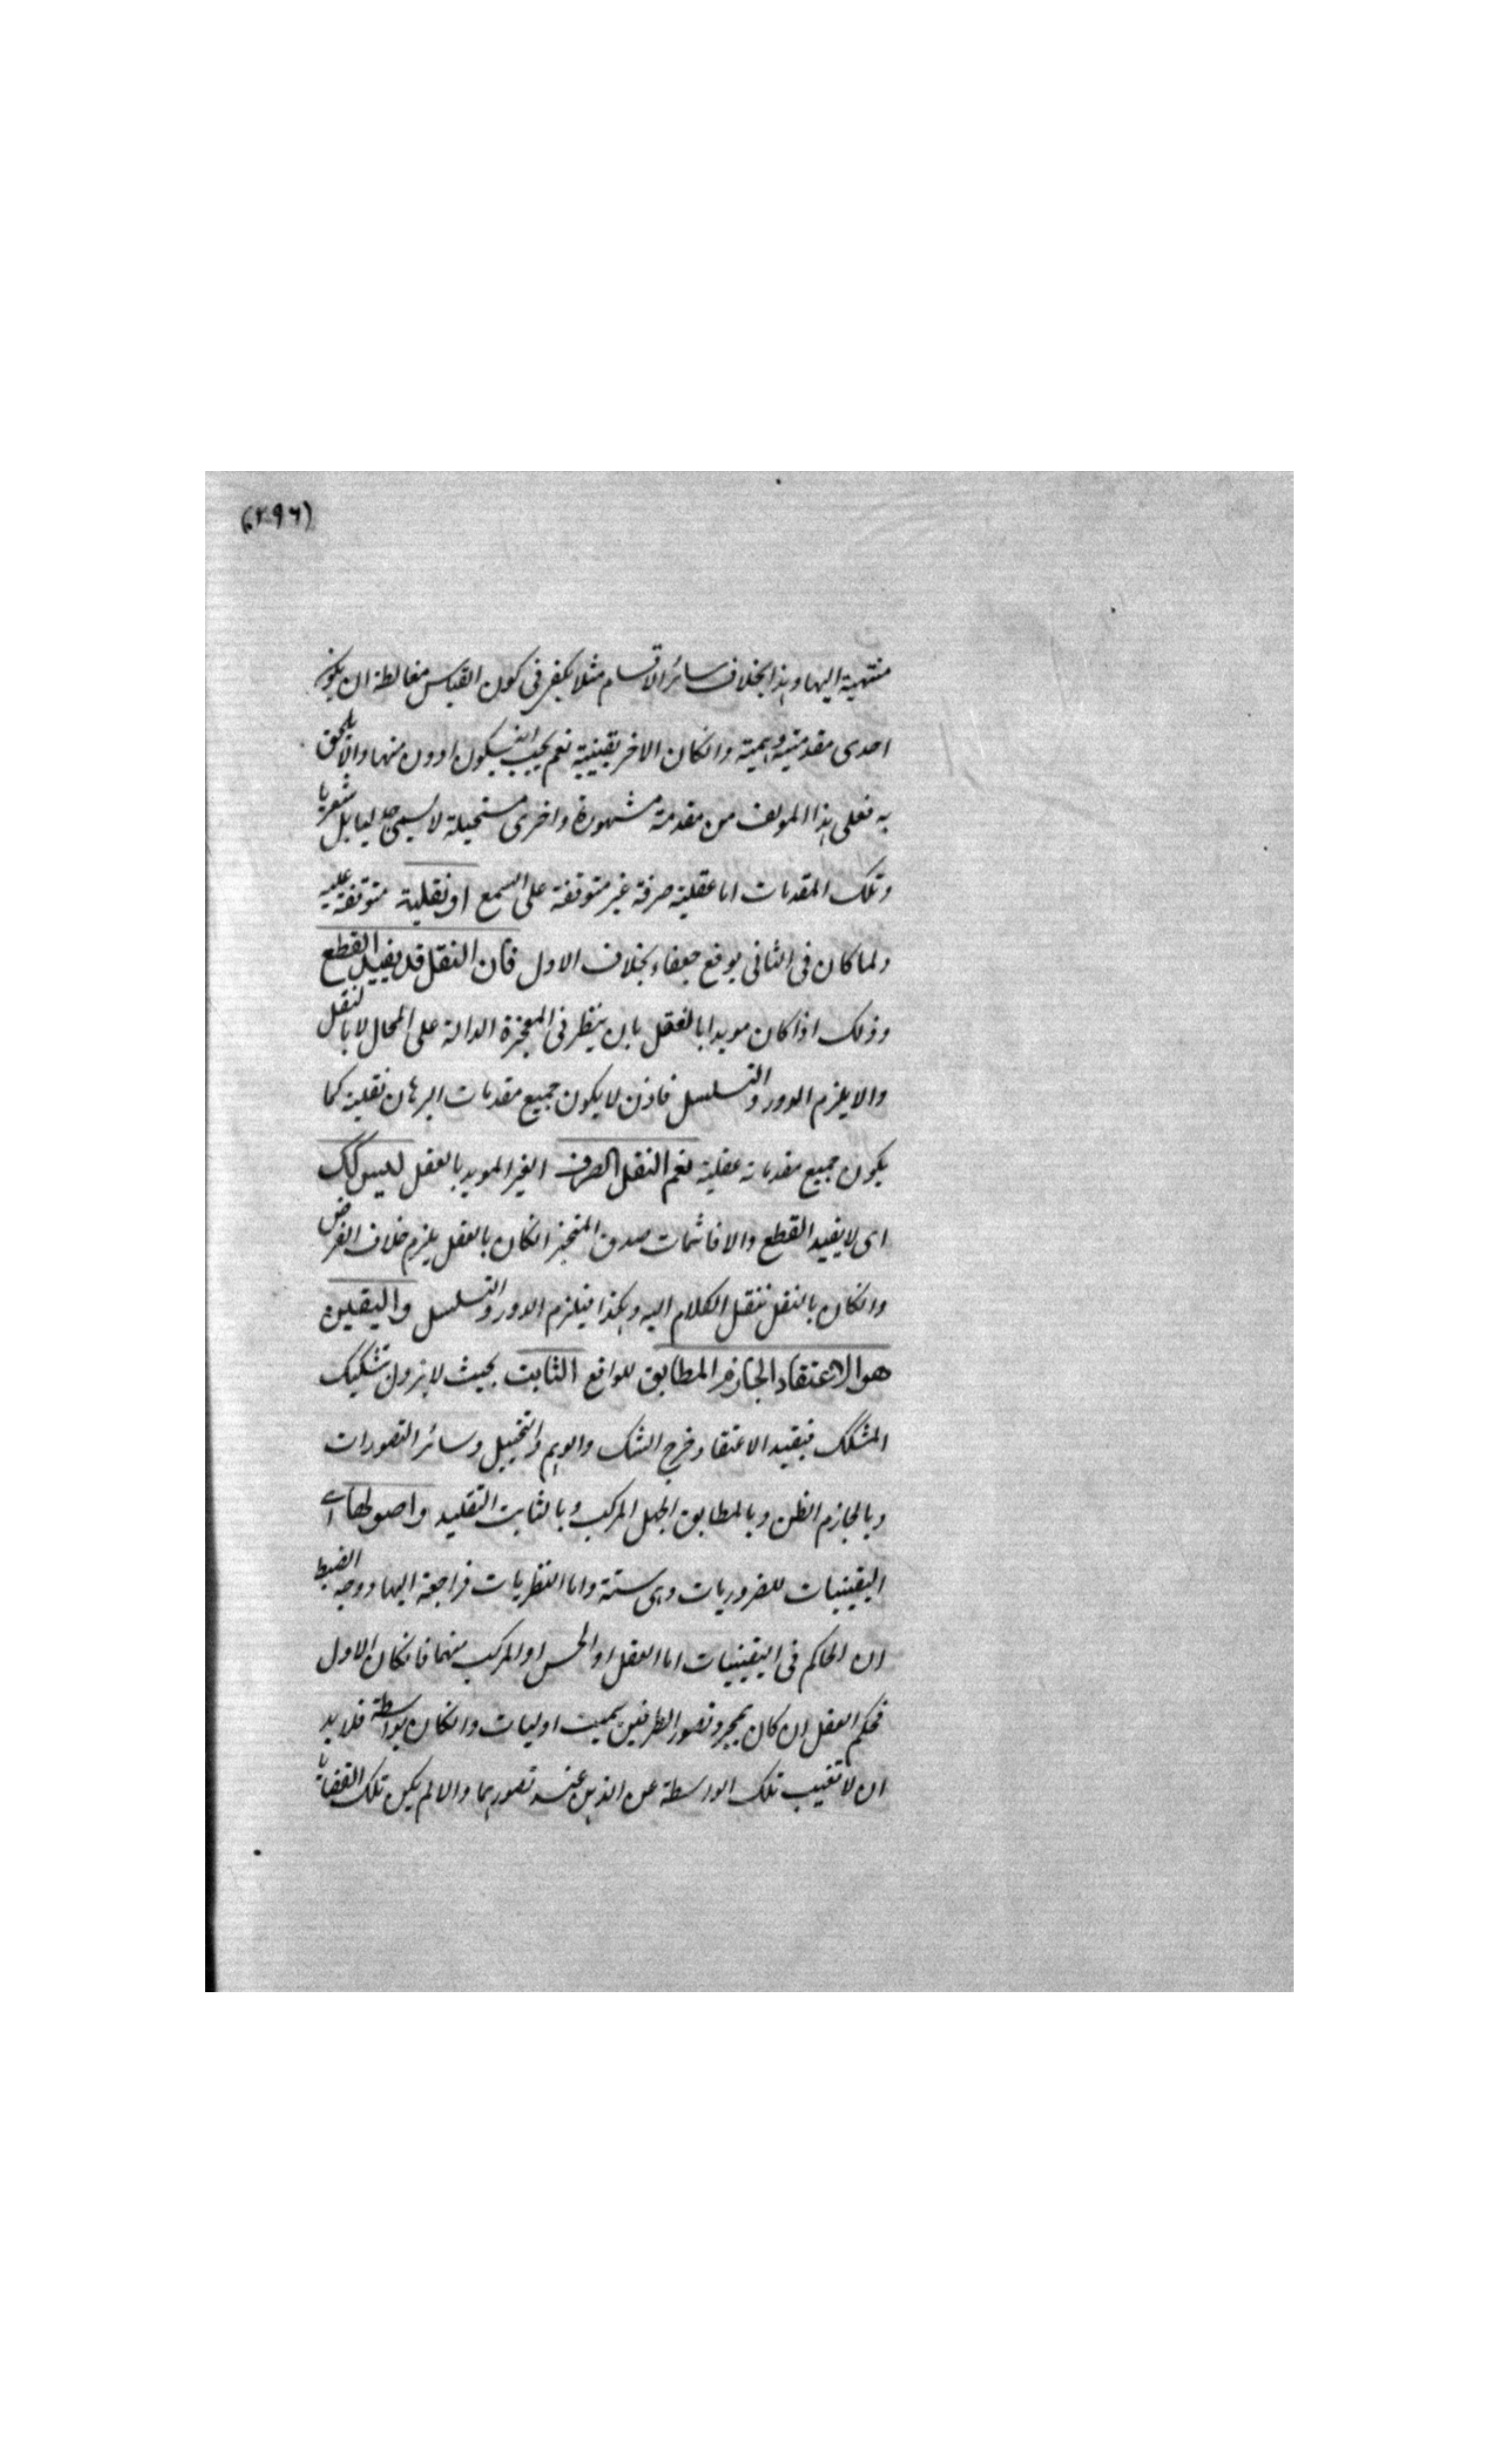 (٢٩٦)
منتهية اليها وهذا بخلاف سائر الاقسام مثلا يكفى فى كون القياس مغالطة ان يكون
احدى مقدمتيه وهمية وانكان الاخر يقينية نعم يجب ان يكون ادون منها والا يلحق
به فعلى هذا المولف من مقدمة مشهورة واخرى مستحيلة لا يسمى جدليا بل شعريا
وتلك المقدمات اما عقلية صرفة غير متوقفة على السمع او نقلية متوقفة عليه
ولما كان فى الثانى يوقع خفاء بخلاف الاول فان النقل قد يفيد القطع
وذلك اذا كان مويدا بالعقل بان ينظر فى المعجزة الدالة على المحال لا بالنقل
والا يلزم الدور والتسلسل فاذن لا يكون جميع مقدمات البرهان نقلية كما
يكون جميع مقدماته عقلية نعم النقل الصرف الغير المويد بالعقل ليس كك
اى لا يفيد القطع والا فاثبات صدق المخبر انكان بالعقل يلزم خلاف الفرض
وانكان بالنقل ننقل الكلام اليه وهكذا فيلزم الدور والتسلسل واليقين
هو الاعتقاد الجازم المطابق للواقع الثابت بحيث لا يزول بتشكيك
المشكك فبقيد الاعتقاد خرج الشك والوهم والتخييل وسائر التصورات
وبالجازم الظن وبالمطابق الجهل المركب وبالثابت التقليد واصولها اى
اليقينيات للضروريات وهى ستة واما النظريات فراجعة اليها ووجه الضبط
ان الحاكم فى اليقينيات اما العقل او الحس او المركب منهما فانكان الاول
فحكم العقل ان كان بمجرد تصور الطرفين سميت اوليات وانكان بواسطة فلا بد
ان لا تغيب تلك الواسطة عن الذهن عند تصورهما والا لم يكن تلك القضايا